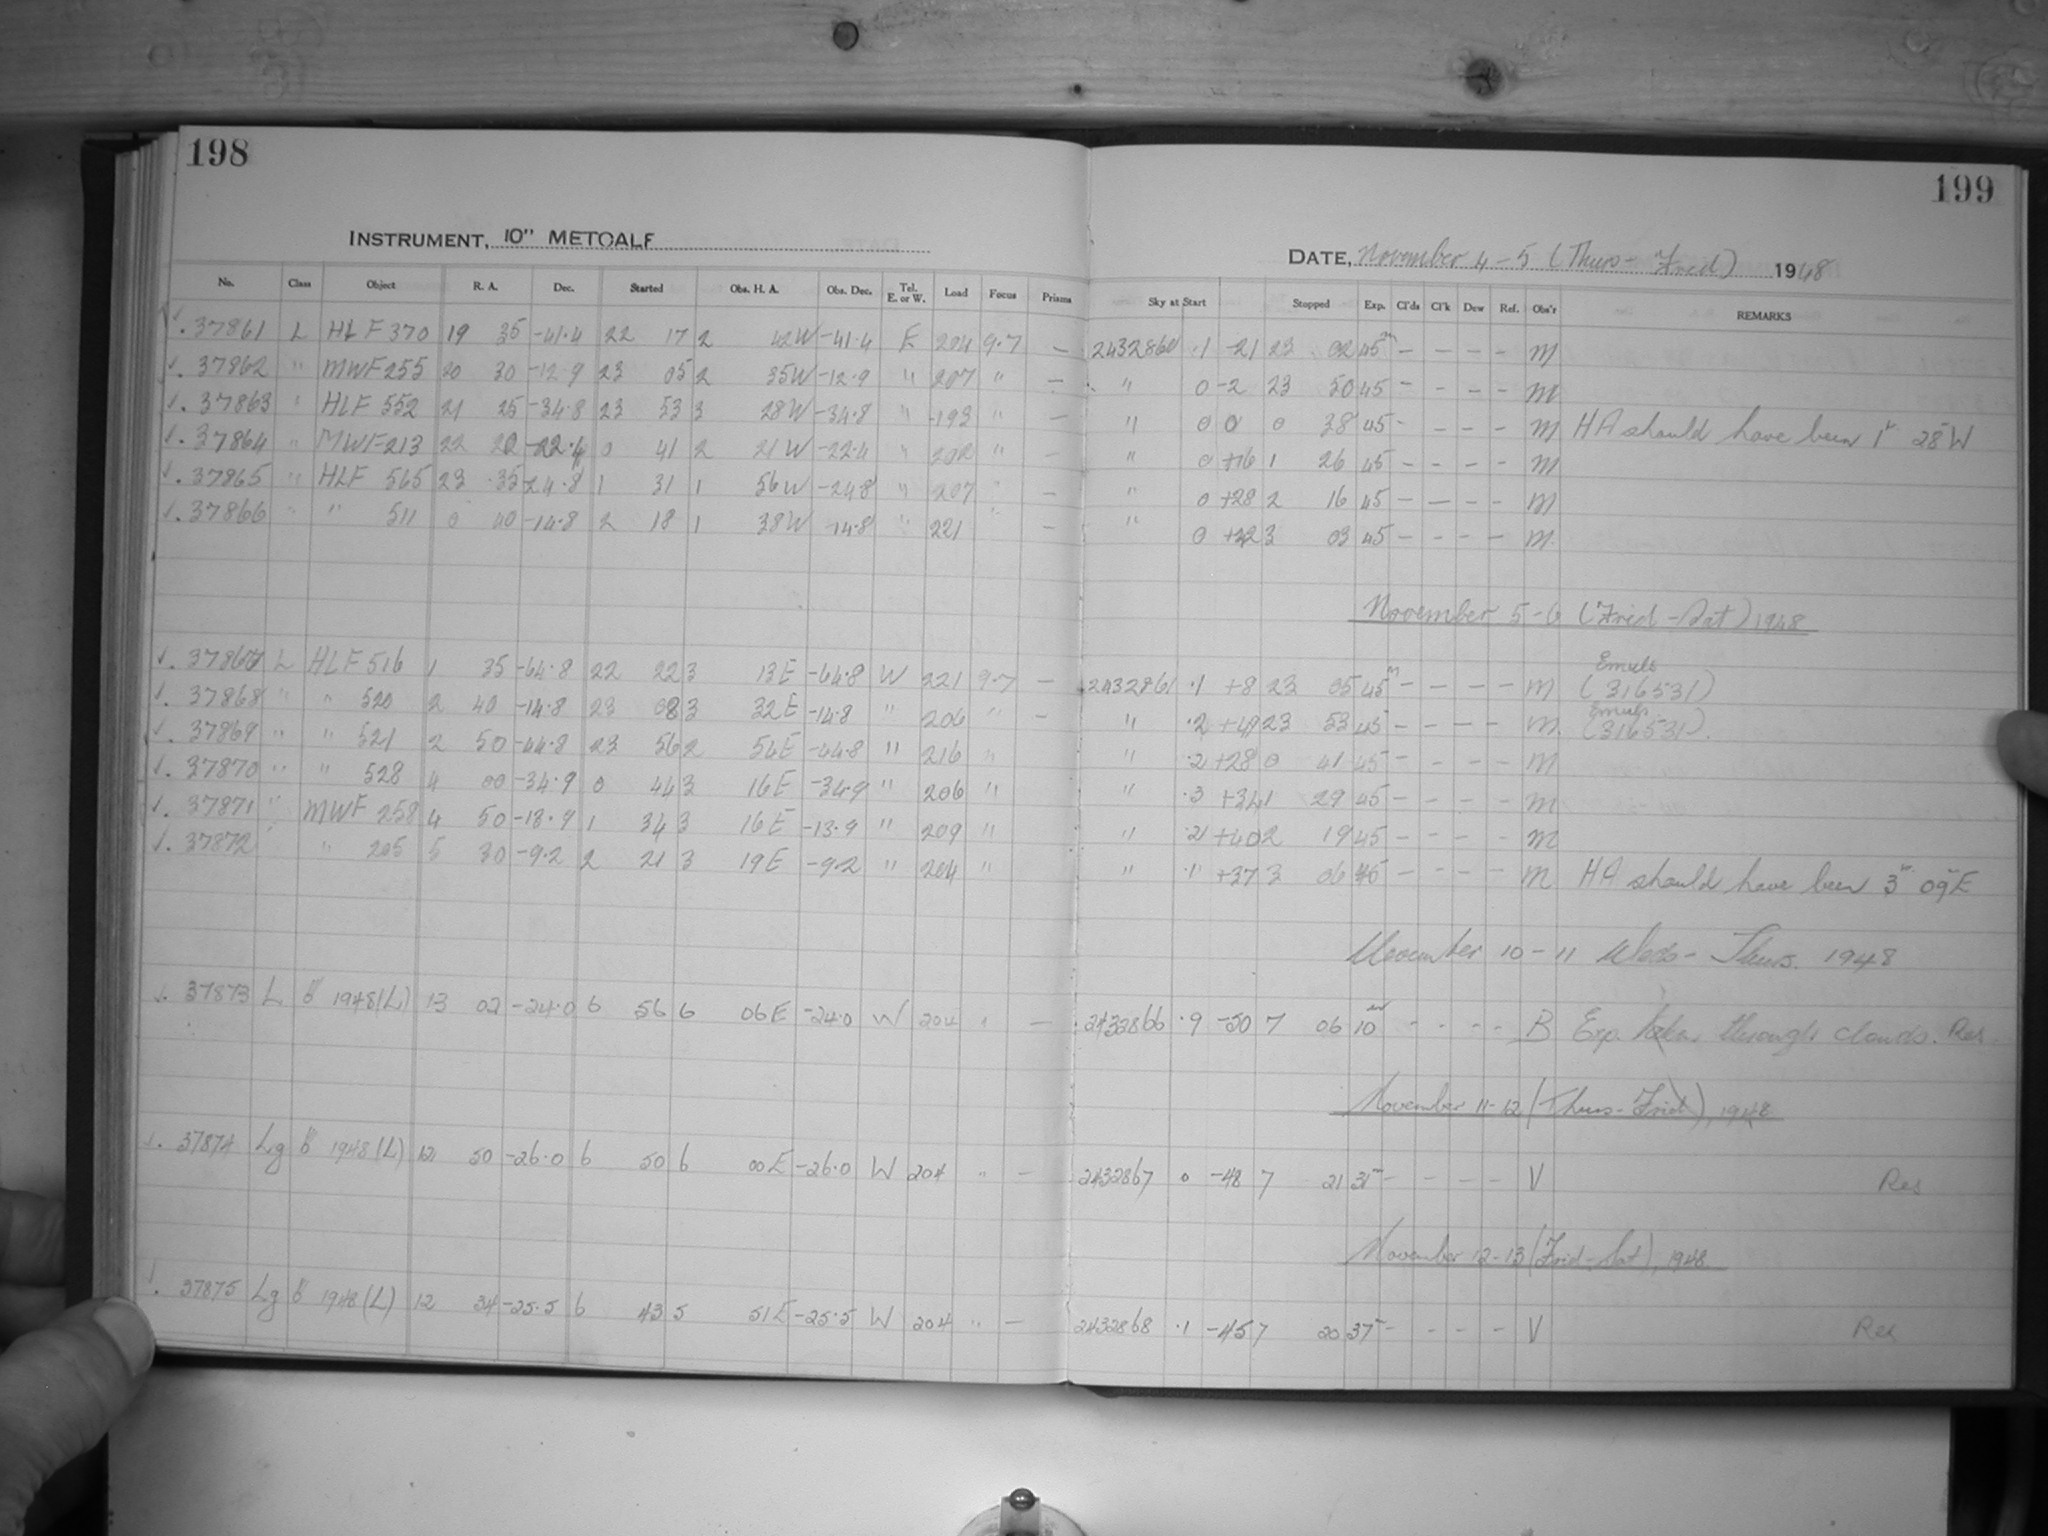 198
199
INSTRUMENT, 10" METCALF
DATE, November 4-5 (Thurs- Frid) 1948
No. Class Object R. A. Dec. Started Obs. H. A. Obs. Dec. Tel. E. or W. Load Focus Prisms Sky at Start Stopped Exp. Cl'ds Cl'k Dew Ref. Obs'r REMARKS
37861 L HLF 370 19 35 -41.4 22 17 2 42W -41.4 E 204 9.7 — 2432860 .1 -21 23 02 45m - - - - M
37862 " MWF 255 20 30 -12.9 23 05 2 35W -12.9 " 207 " — " 0 -2 23 50 45 - - - - M
37863 " HLF 552 21 25 -34.8 23 53 3 28W -34.8 " 193 " — " 0 0 0 38 45 - - - - M HA should have been 1h 28m W
37864 " MWF 213 22 20 -22.4 0 41 2 21W -22.4 " 202 " — " 0 +16 1 26 45 - - - - M
37865 " HLF 565 23 35 -24.8 1 31 1 56W -24.8 " 207 " — " 0 +28 2 16 45 - - - - M
37866 " " 511 0 40 -14.8 2 18 1 38W -14.8 " 221 " — " 0 3 03 45 - - - - M
November 5-6 (Frid-Sat) 1948
37867 L HLF 516 1 35 -64.8 22 22 3 13E -64.8 W 221 9.7 — 2432861 .1 +8 23 05 45m - - - - M Emuls (316531)
37868 " " 520 2 40 -14.8 23 08 3 32E -14.8 " 206 " — " .2 +49 23 53 45 - - - - M Emuls (316531).
37869 " " 521 2 50 -44.8 23 56 2 54E -44.8 " 216 " " .2 +28 0 41 45 - - - - M
37870 " " 528 4 00 -34.9 0 44 3 16E -34.9 " 206 " " .3 +34 1 29 45 - - - - M
37871 " MWF 258 4 50 -13.9 1 34 3 16E -13.9 " 209 " " .2 +40 2 19 45 - - - - M
37872 " " 205 5 30 -9.2 2 21 3 19E -9.2 " 204 " " .1 +37 3 06 45 - - - - M HA should have been 3h 09m E
November 10-11 Weds- Thurs. 1948
37873 L 1948(L) 13 02 -24.0 6 56 6 06E -24.0 W 204 " — 2432866 .9 -50 7 06 10m - - - - B Exp. taken through clouds. Res.
November 11-12 (Thurs-Frid), 1948
37874 Lg 1948(L) 12 50 -26.0 6 50 6 00E -26.0 W 204 " — 2432867 0 -48 7 21 31m - - - - V Res
November 12-13 (Frid-Sat), 1948
37875 Lg 1948(L) 12 34 -25.5 6 43 5 51E -25.5 W 204 " — 2432868 .1 -45 7 20 37m - - - - V Res